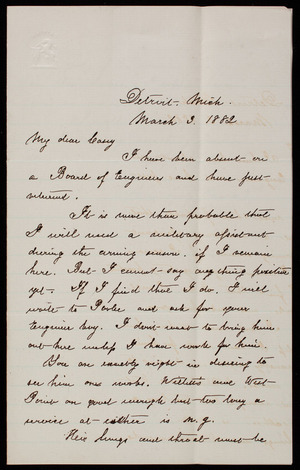 Detroit. Mich.
March 3. 1882
My dear Casey
I have been absent on
a Board of Engineers and have just
returned.
It is more than probable that
I will need a military assistant
during the coming season. if I remain
here. But I cannot say anything positive
yet. If I find that I do, I will
write to Parke and ask for your
Engineer boy. I don't want to bring him
out here unless I have work for him.
You are exactly right in desiring to
see him on works. Willets and West
Point are good enough but too long a
service at either is n.g.
His lungs and throat must be